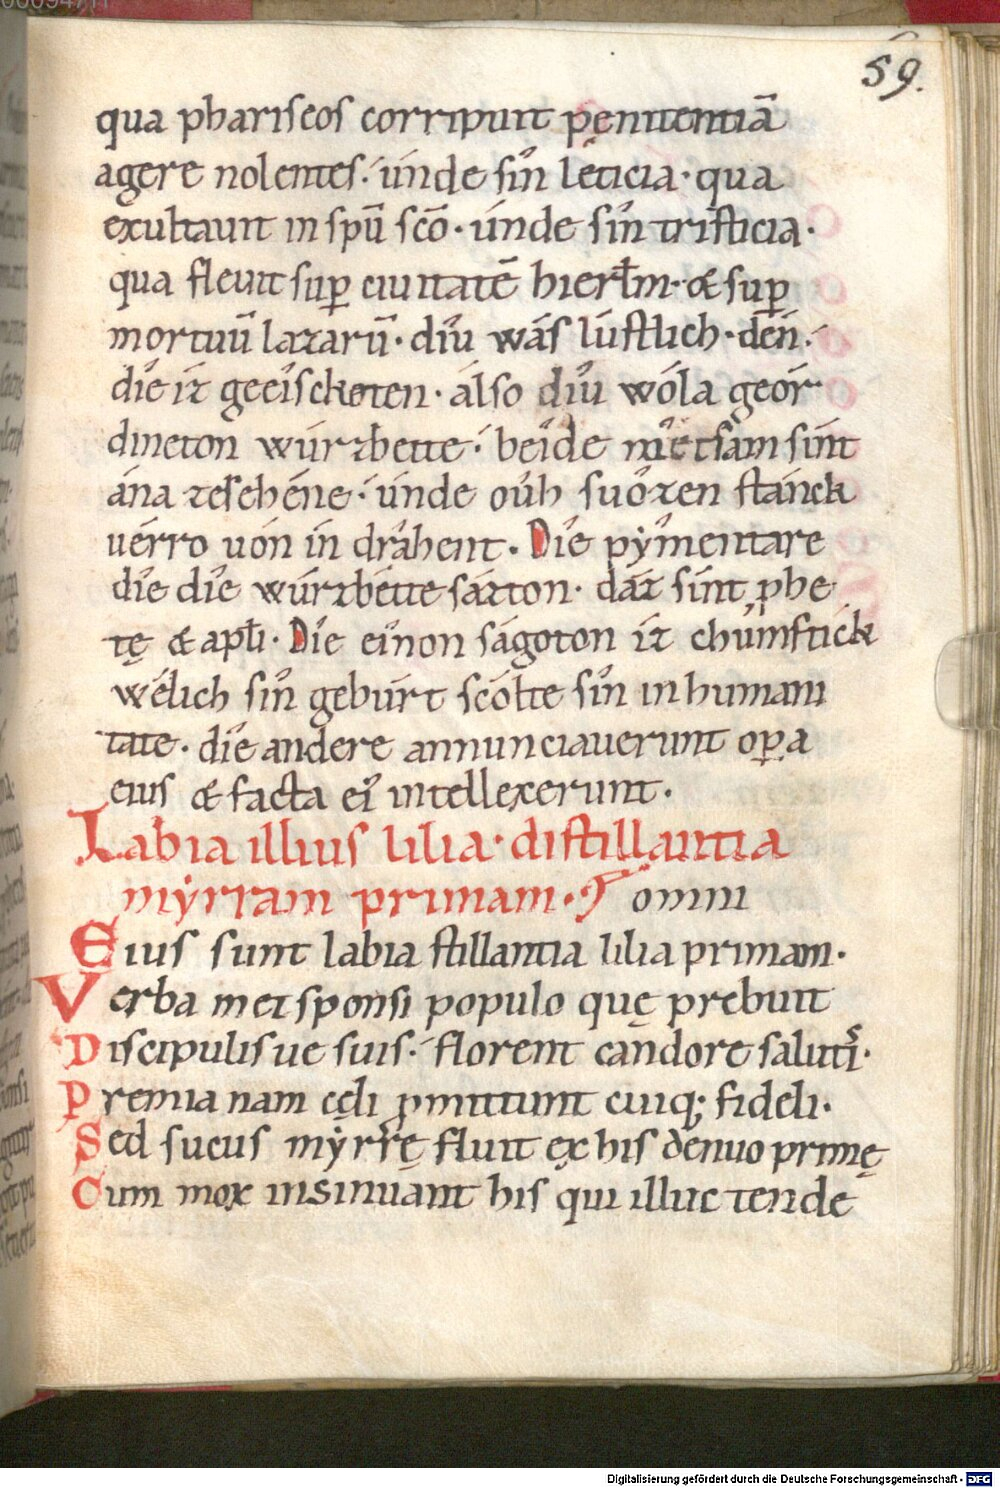 59.
qua phariseos corripuit pęnitentiā
agere nolentes· únde sîn lęticia· qua
exultauit in spū scō· únde sîn tristicia·
qua fleuit sup̱ ciuitatē hierłm· & sup̱
mortuū lazarū· díu wás lústlich· dén·
díe iz geéisckoten· álso díu wóla geór
dineton wúrzbette· béide níetsam sínt
ána zesehéne· únde oúh suózen stánck
uérro uón ín dráhent· Díe pýmentare
díe díe wúrzbétte sázton· dáz sínt p̱phe
tę & apłi· Díe eínon ságoton iz chúmftick
wélich sîn gebúrt scólte sîn in humani
tate· díe andere annunciauerunt op̱a
eius & facta eī intellexerunt·
Labia illius lilia· distillantia
mẏrram primam·
omni
Eius sunt labia stillantia lilia primam·
Verba met sponsi populo quę prebuit
Discipulis ue suis· florent candore saluti᷒·
Premia nam cęli p̱mittunt cuiq; fideli·
Sed sucus mẏrrę fluit ex his denuo primę
Cum mox insinuant his qui illuc tende
Digitalisierung gefördert durch die Deutsche Forschungsgemeinschaft - DFG